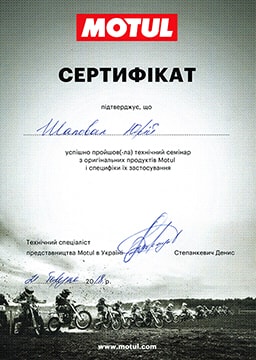 MOTUL
СЕРТИФІКАТ
підтверджує, що
Шаповал Юрій
успішно пройшов(-ла) технічний семінар
з оригінальних продуктів Motul
і специфіки їх застосування
Технічний спеціаліст
представництва Motul в Україні
Степанкевич Денис
21 2018 р.
www.motul.com